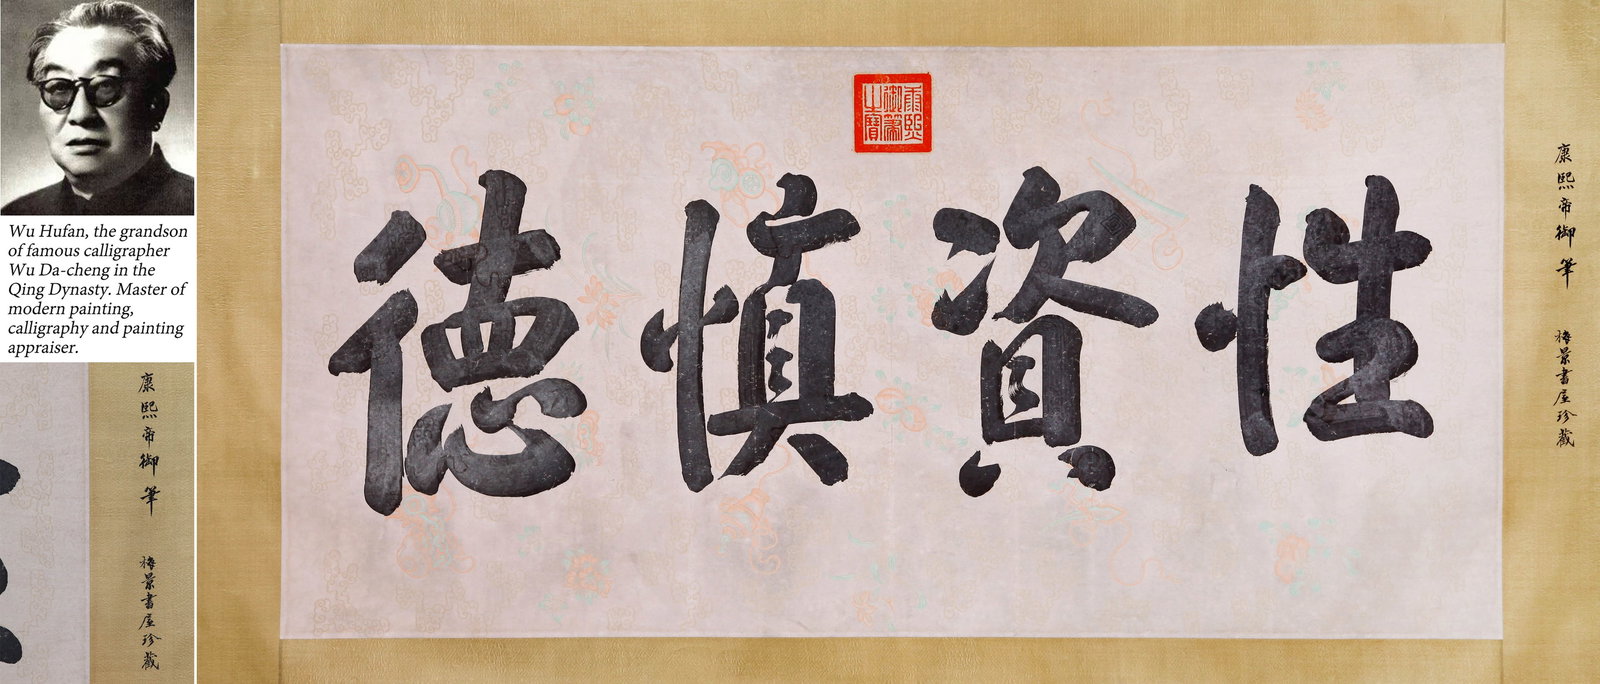 Wu Hufan, the grandson
of famous calligrapher
Wu Da-cheng in the
Qing Dynasty. Master of
modern painting,
calligraphy and painting
appraiser.
康熙帝御筆
梅景書屋珍藏
康熙御筆之寶
性資慎德
康熙帝御筆
梅景書屋珍藏